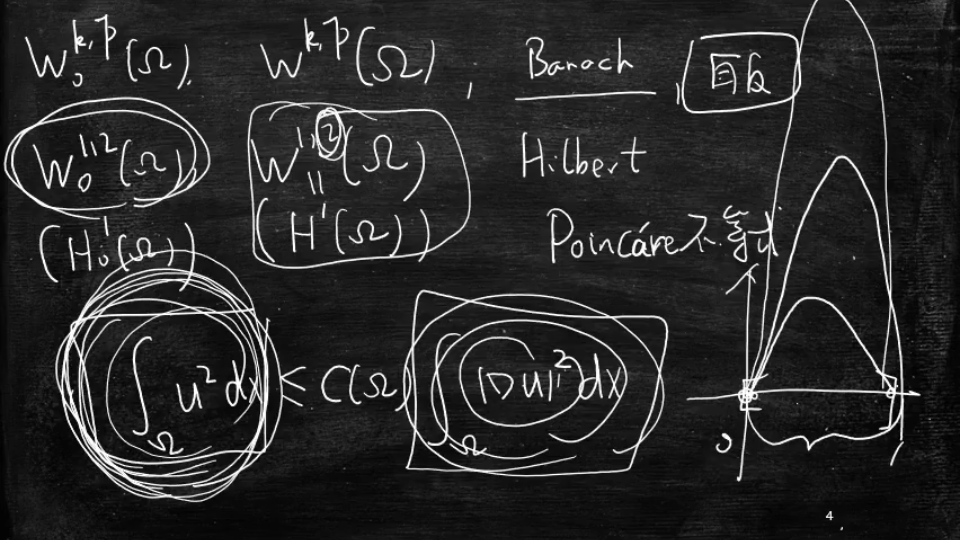 W₀^{k,p}(Ω), W^{k,p}(Ω), Banach, 自反
W₀^{1,2}(Ω) W^{1,2}(Ω) Hilbert
(H₀¹(Ω)) (H¹(Ω)) Poincáre不等式
∫_Ω u² dx ≤ C(Ω) ∫_Ω |Du|² dx
0 1
4